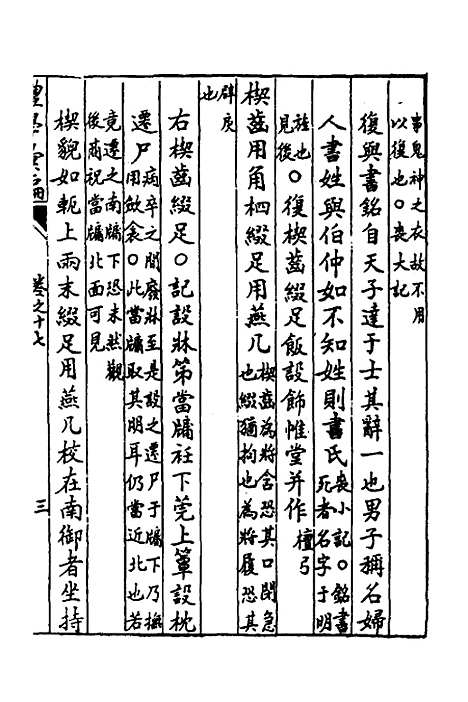 事鬼神之衣故不用
以復也○喪大記
復與書銘自天子達于士其辭一也男子稱名婦
人書姓與伯仲如不知姓則書氏喪小記○銘書死者名字于明
旌也見後○復楔齒綴足飯設飾帷堂并作檀弓
楔齒用角柶綴足用燕几楔齒為將含恐其口閉急也綴猶拘也為將履恐其
辟戾也
右楔齒綴足○記設牀第當牖衽下莞上簟設枕
遷尸病卒之間廢牀至是設之遷尸于牖下乃撫用斂衾○此當牖取其明耳仍當近北也若
竟遷之南牖下恐未然觀後商祝當牖北面可見
楔貌如軶上兩末綴足用燕几校在南御者坐持
卷之十七
三